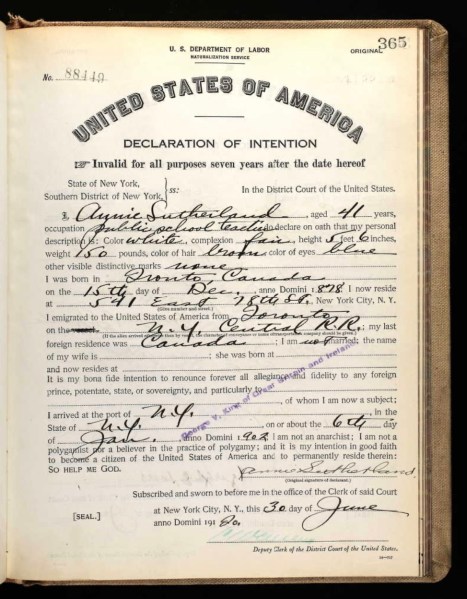 365
U. S. DEPARTMENT OF LABOR
NATURALIZATION SERVICE
ORIGINAL
No. 88449
UNITED STATES OF AMERICA
DECLARATION OF INTENTION
☞ Invalid for all purposes seven years after the date hereof
State of New York,
Southern District of New York, } ss: In the District Court of the United States.
I, Annie Sutherland, aged 41 years,
occupation public school teacher, do declare on oath that my personal
description is: Color white, complexion fair, height 5 feet 6 inches,
weight 150 pounds, color of hair brown, color of eyes blue
other visible distinctive marks none
I was born in Toronto Canada
on the 15th day of Dec., anno Domini 1878 I now reside
at 541 East 78th St., New York City, N. Y.
(Give number and street.)
I emigrated to the United States of America from Toronto
on the vessel N.Y. Central R.R.; my last
(If the alien arrived otherwise than by vessel, the character of conveyance or name of transportation company should be given.)
foreign residence was Canada; I am not married; the name
of my wife is ; she was born at
and now resides at
It is my bona fide intention to renounce forever all allegiance and fidelity to any foreign
prince, potentate, state, or sovereignty, and particularly to
George V, King of Great Britain and Ireland
, of whom I am now a subject;
I arrived at the port of N.Y., in the
State of N.Y., on or about the 6th day
of Jan., anno Domini 1902 I am not an anarchist; I am not a
polygamist nor a believer in the practice of polygamy; and it is my intention in good faith
to become a citizen of the United States of America and to permanently reside therein:
SO HELP ME GOD.
Annie Sutherland
(Original signature of declarant.)
Subscribed and sworn to before me in the office of the Clerk of said Court
[SEAL.] at New York City, N. Y., this 30 day of June
anno Domini 1920.
Deputy Clerk of the District Court of the United States.